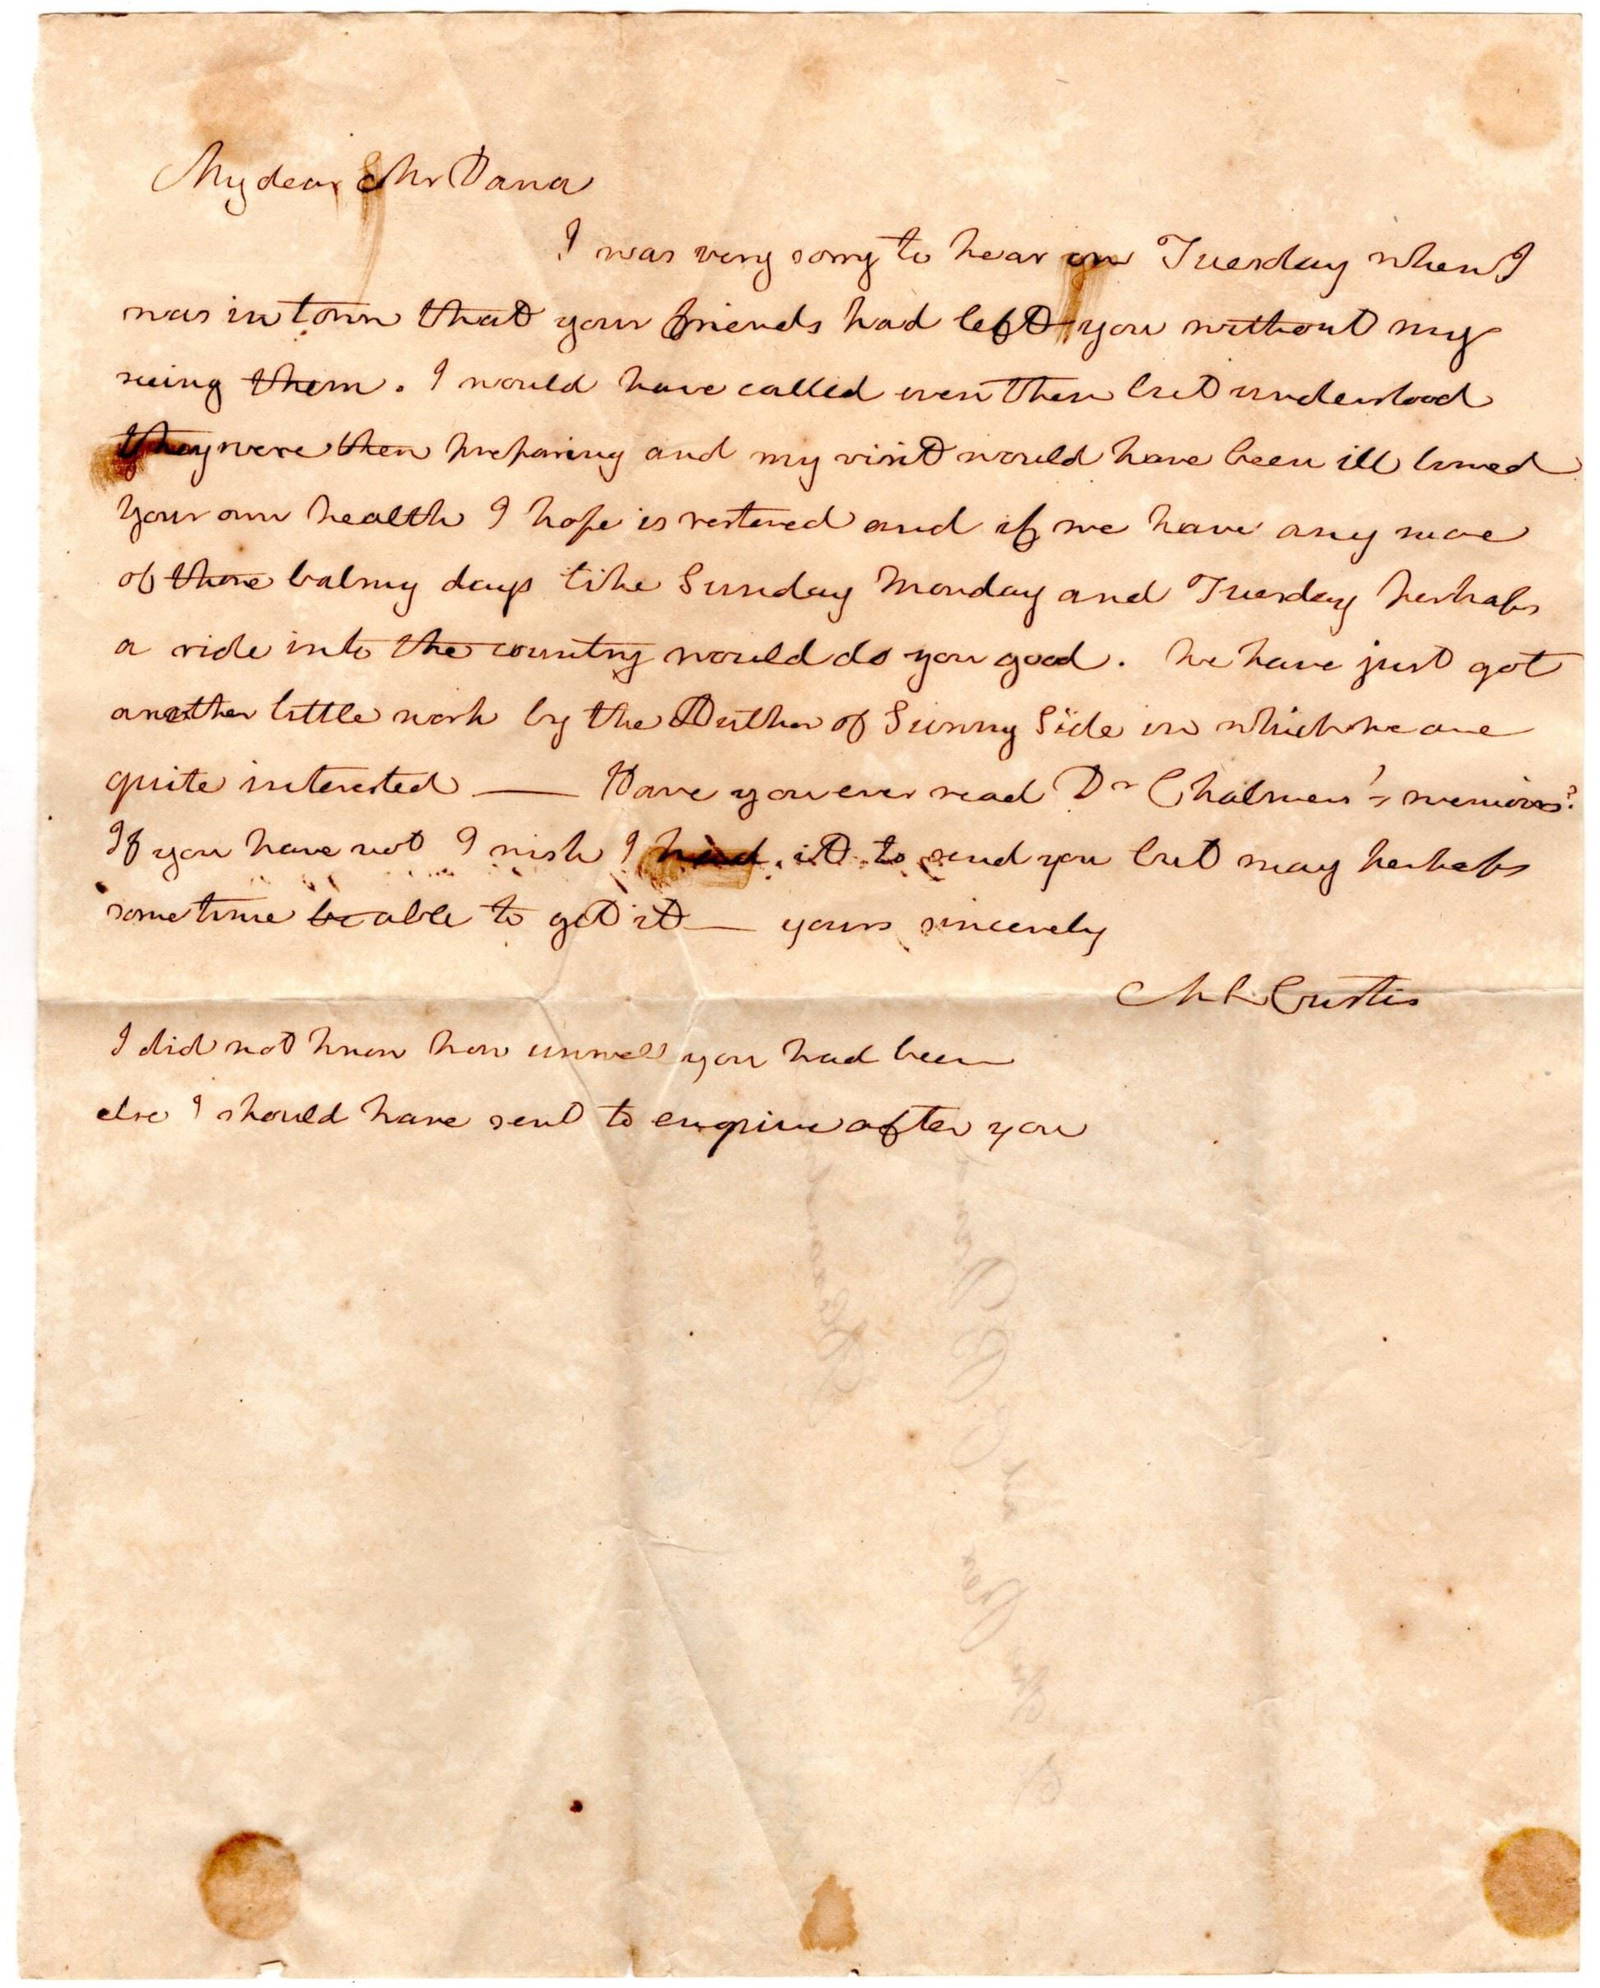 My dear Mr Dana
I was very sorry to hear on Tuesday when I
was in town that your friends had left you without my
seeing them. I would have called even then but understood
they were then preparing and my visit would have been ill timed
Your own health I hope is restored and if we have any more
of those balmy days like Sunday Monday and Tuesday perhaps
a ride into the country would do you good. We have just got
another little work by the Author of Sunny Side in which we are
quite interested — Have you ever read Dr Chalmers's memoirs?
If you have not I wish I had it to send you but may perhaps
sometime be able to get it — yours sincerely
M L Custis
I did not know how unwell you had been
else I should have sent to enquire after you